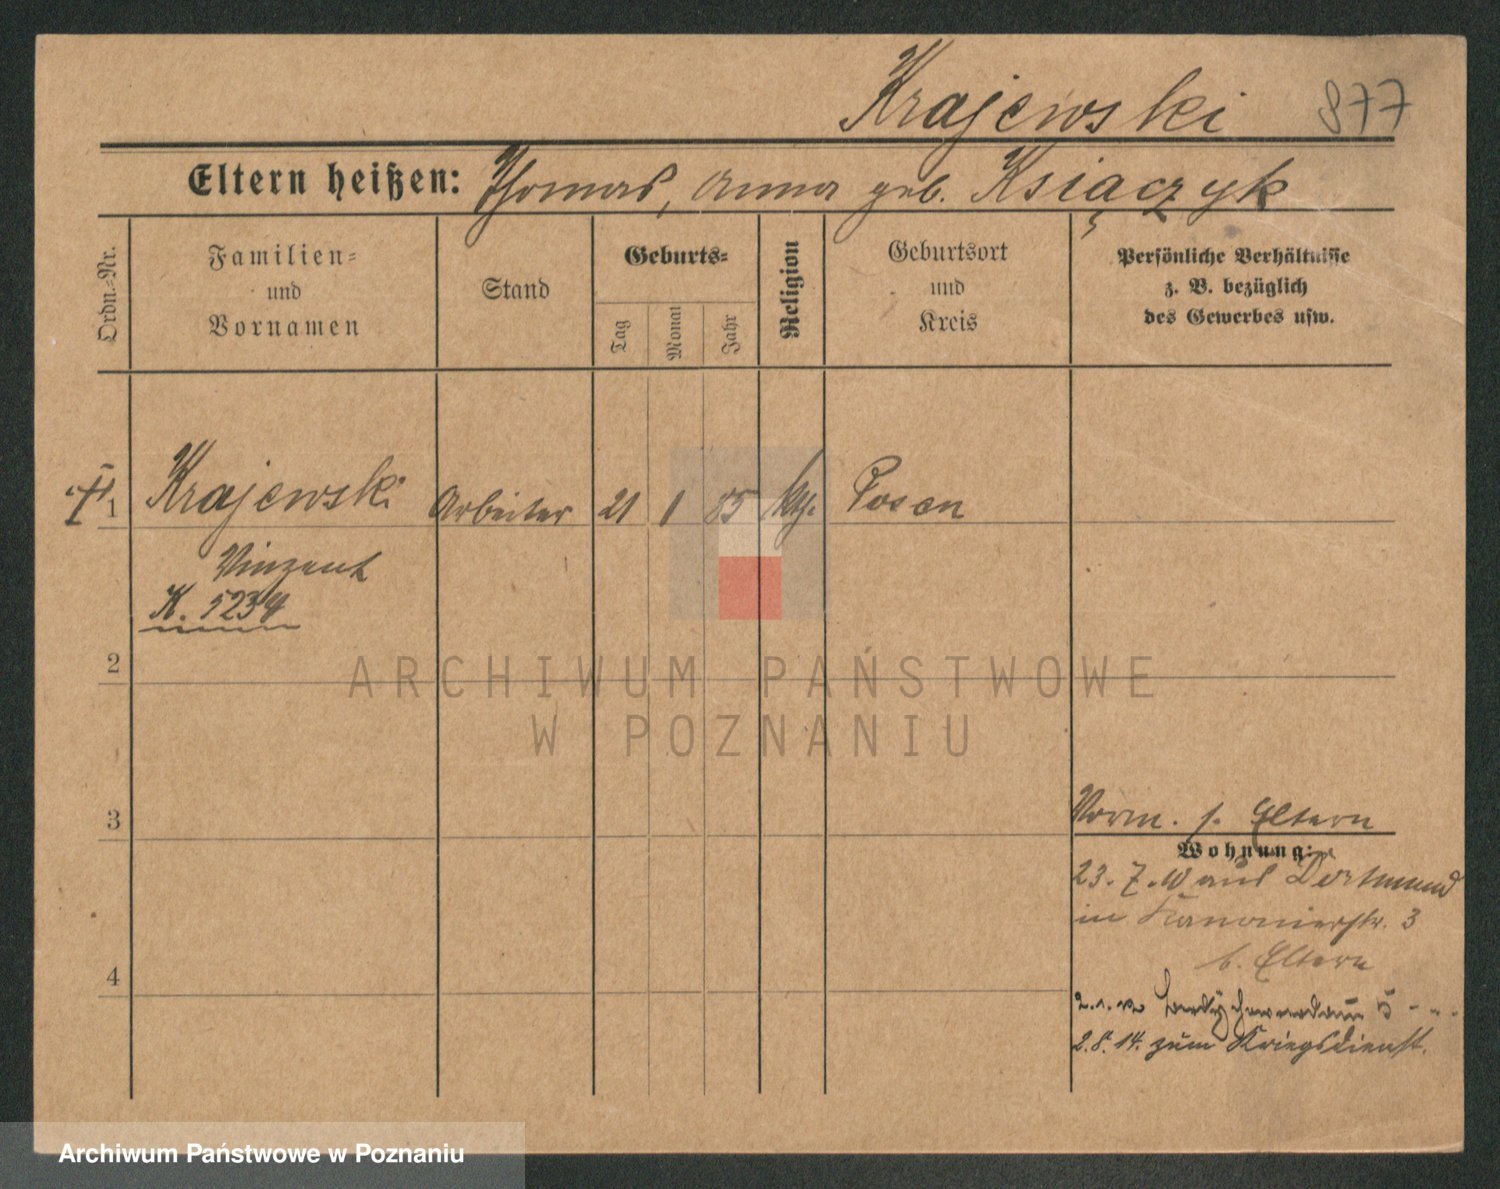 Krajewski 877
Eltern heißen: Thomas, Anna geb. Książczyk
Ordn.-Nr.
Familien-
und
Vornamen
Stand
Geburts-
Tag
Monat
Jahr
Religion
Geburtsort
und
Kreis
Persönliche Verhältnisse
z. B. bezüglich
des Gewerbes usw.
1 Krajewski Arbeiter 21 1 85 kth. Posen
Vinzent
K. 5234
2
3
4
Vorm. s. Eltern
Wohnung:
23. 7. 10 aus Dortmund
in Kanonierstr. 3
b. Eltern
2. 1. 12 5
2. 8. 14. zum Kriegsdienst.
ARCHIWUM PAŃSTWOWE
W POZNANIU
Archiwum Państwowe w Poznaniu